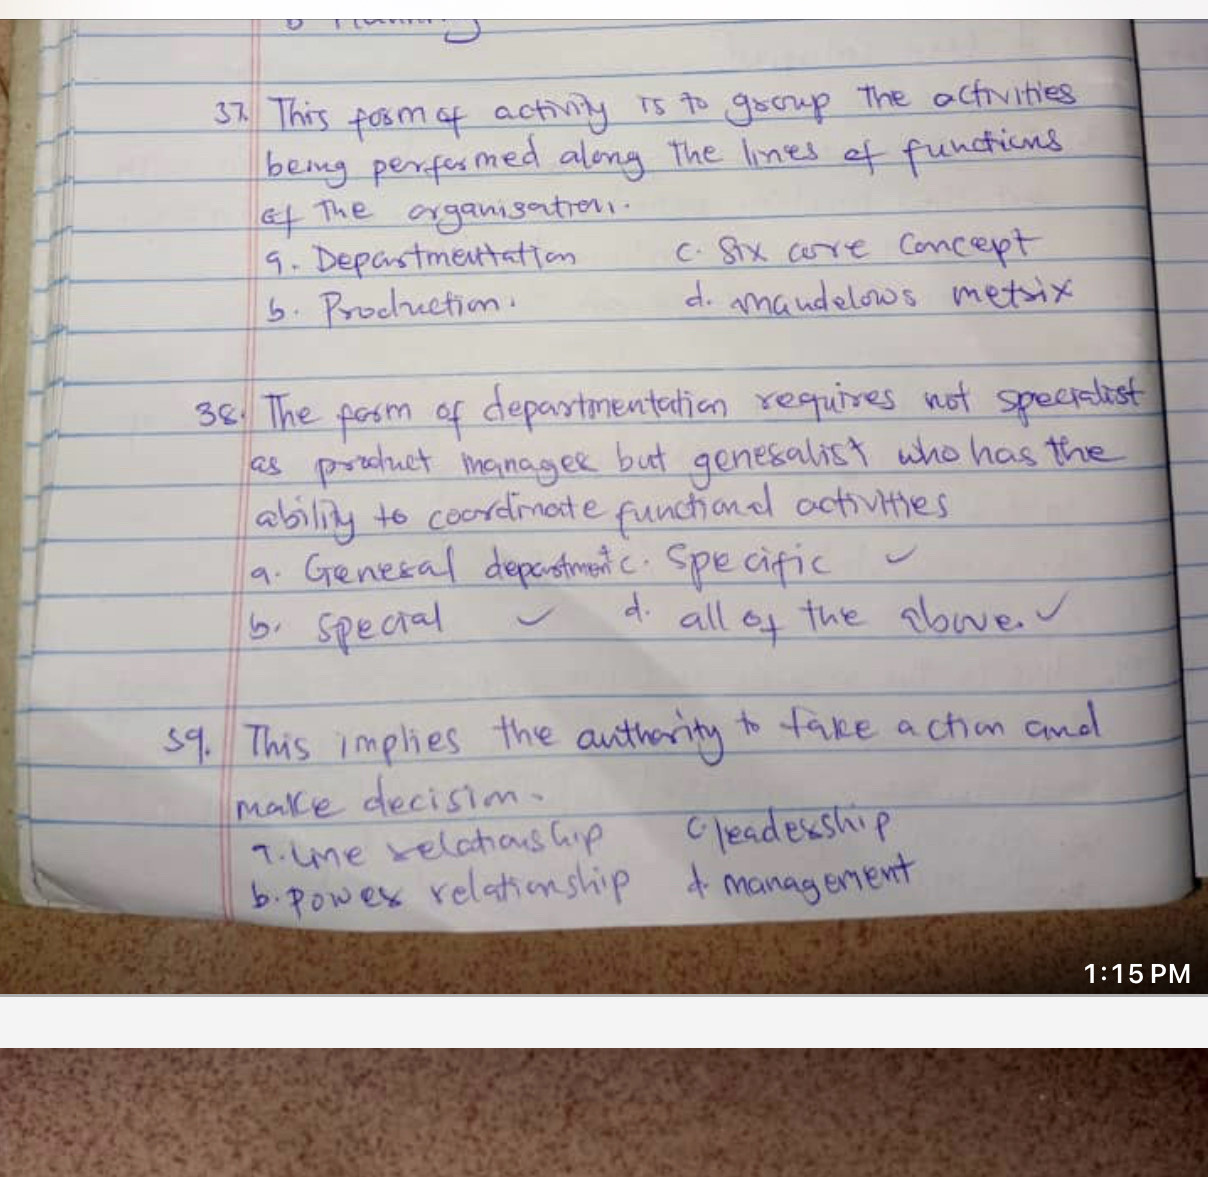 37. This form of activity is to group the activities
being performed along the lines of functions
of the organisation.
a. Departmentation c. Six core Concept
b. Production. d. mandelows metrix
38. The form of departmentation requires not specialist
as product manager but generalist who has the
ability to coordinate functional activities
a. General department c. Specific ✓
b. special ✓ d. all of the above. ✓
39. This implies the authority to take action and
make decision.
a. Line relationship c leadership
b. power relationship d. management
1:15 PM